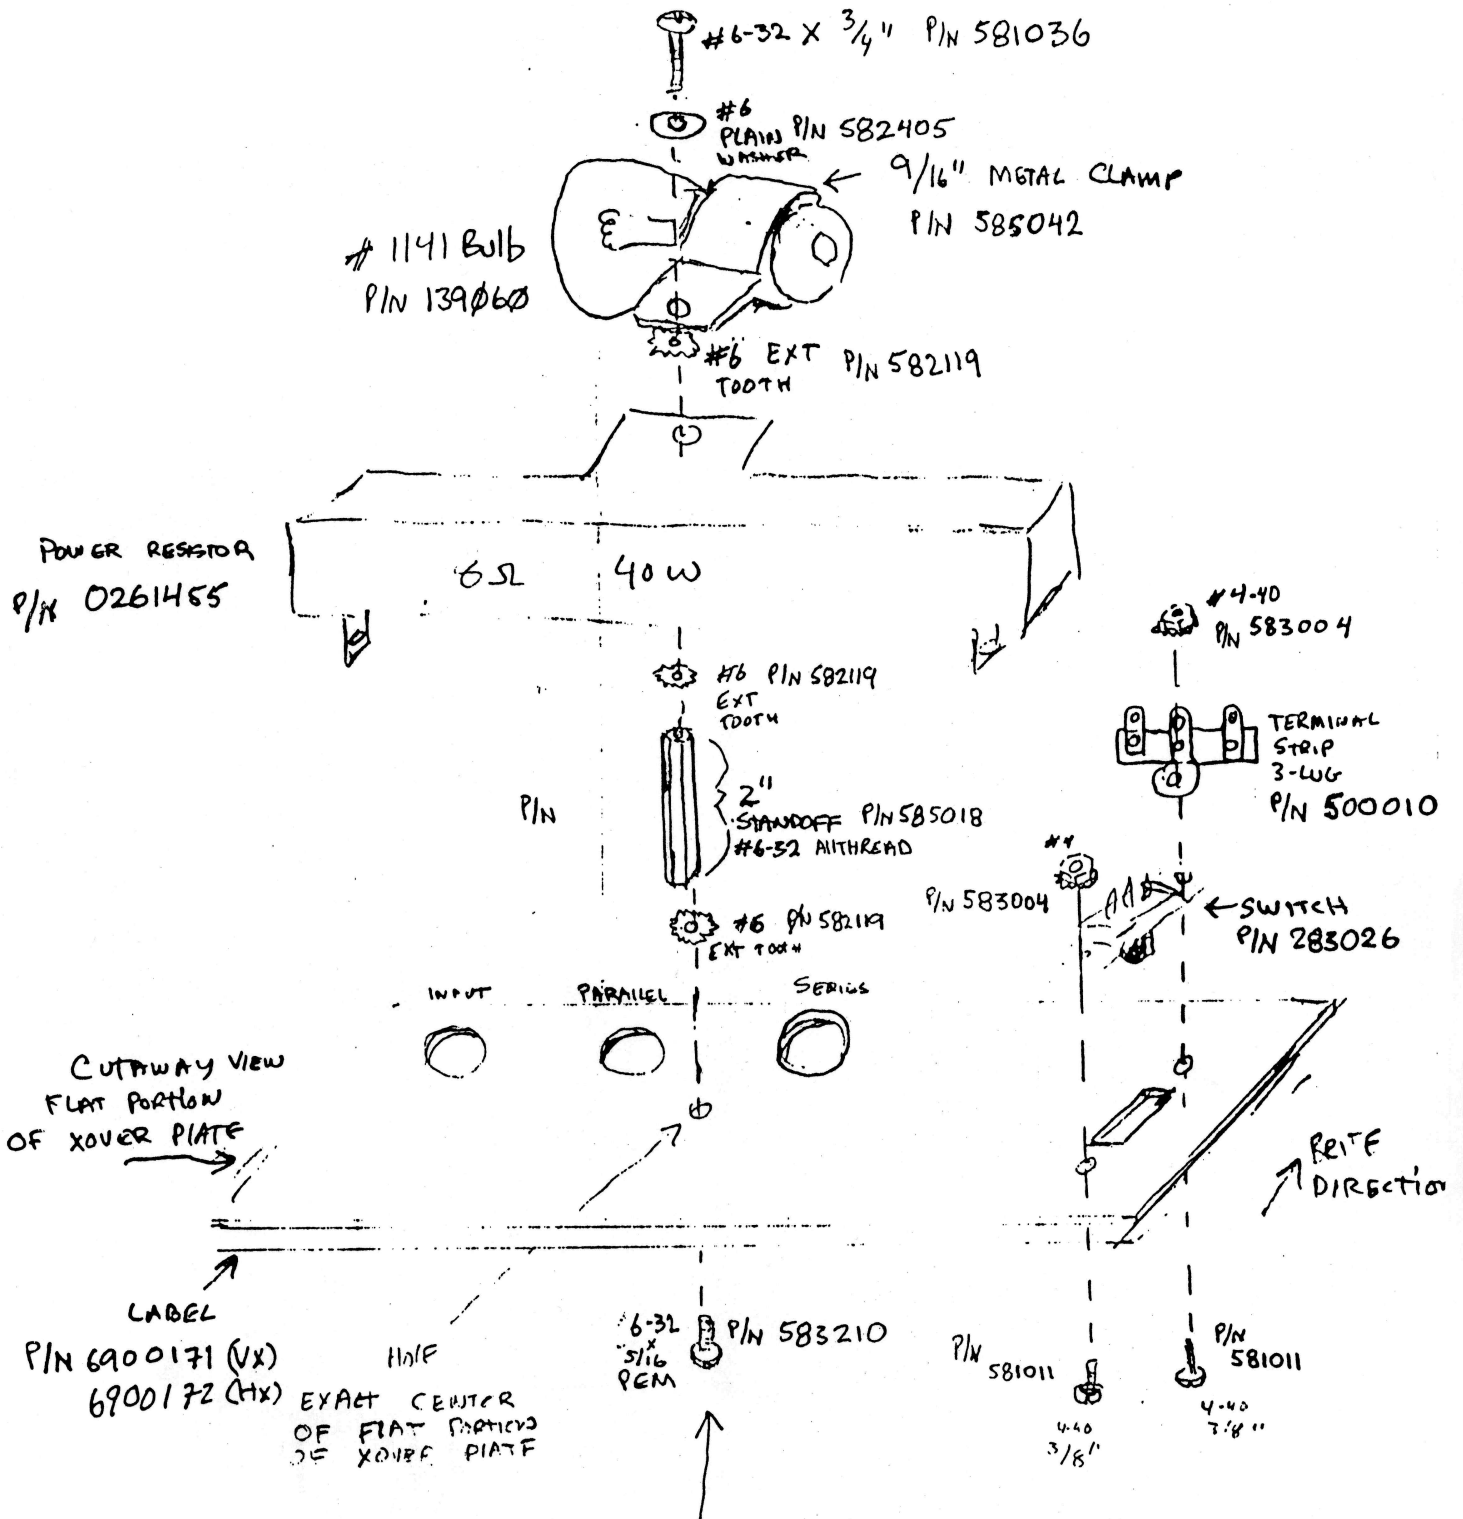 #6-32 X 3/4" P/N 581036
#6
PLAIN P/N 582405
WASHER
9/16" METAL CLAMP
P/N 585042
# 1141 Bulb
P/N 139060
#6 EXT P/N 582119
TOOTH
POWER RESISTOR
P/N 0261455
6Ω 40W
#4-40
P/N 583004
#6 P/N 582119
EXT
TOOTH
TERMINAL
STRIP
3-LUG
P/N 500010
P/N
2"
STANDOFF P/N 585018
#6-32 AllTHREAD
#4
P/N 583004
SWITCH
P/N 283026
#6 P/N 582119
EXT TOOTH
INPUT PARALLEL SERIES
CUTAWAY VIEW
FLAT PORTION
OF XOVER PLATE
BRITE
DIRECTION
LABEL
P/N 6900171 (VX)
6900172 (HX)
HOLE
EXACT CENTER
OF FLAT PORTION
OF XOVER PLATE
6-32
x
5/16
PEM
P/N 583210
P/N
581011
4-40
3/8"
P/N
581011
4-40
3/8"